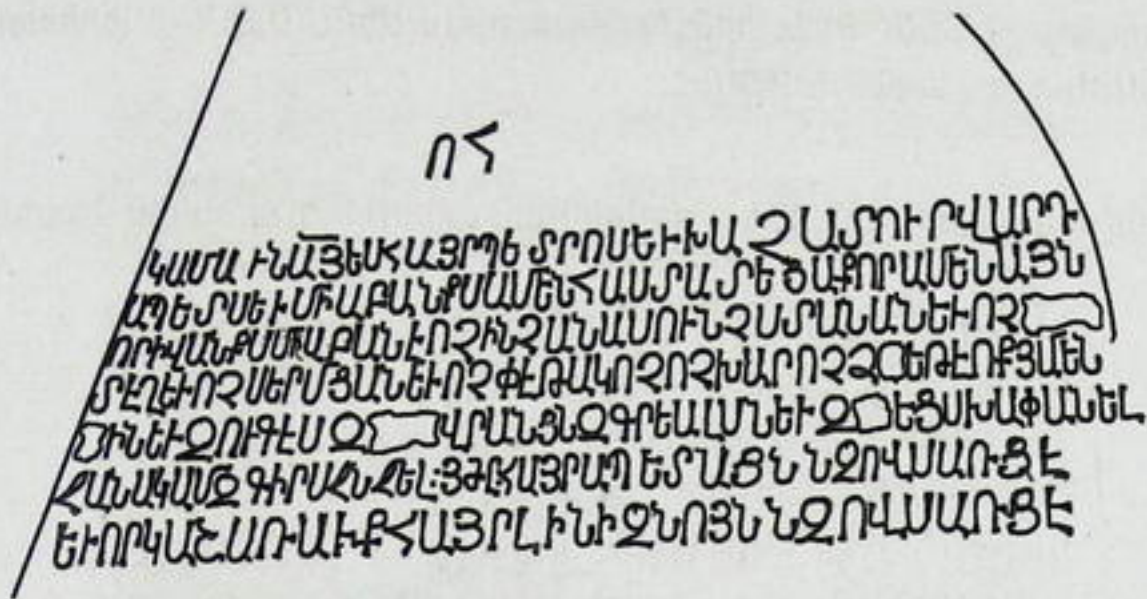 ՈՀ
ԿԱՄԱՒՆԱՅԵՍՀԱՅՐՊԵՏՐՈՍԵՒԽԱՉԱՏՈՒՐՎԱՐԴ
ԱՊԵՏՍԵՒՄԻԱԲԱՆՔՍԱՄԵՆՀԱՍՏԱՏԵՑԱՔՈՐԱՄԵՆԱՅՆ
ՈՐԻՎԱՆՔՍՄԻԱԲԱՆԷՈՉԻՆՉԱՆԱՍՈՒՆՉՍՏԱՆԱՆԵՒՈՉ
ՏԷՂԵՒՈՉՍԵՐՄՑԱՆԵՒՈՉՓԷԹԱԿՈՉՈՉԽԱՐՈՉՁ ԵԹԷՈՔՅԱՄԵՆ
ԻՆԵՒԶՈՒԳԷՍԶ ՎՐԱՆՑՆԶԳՐԵԱԼՄՆԵՒԶ ԵՑՍԽԱՓԱՆԵԼ
ՀԱՆԱԿԱՄՋԳԻՐՍՋՆՋԵԼ:ՅԺԸՀԱՅՐԱՊԵՏԱՑՆՆԶՈՎՍԱՌՑԷ
ԵՒՈՐԿԱՇԱՌԱՒՔՀԱՅՐԼԻՆԻԶՆՈՅՆՆԶՈՎՍԱՌՑԷ